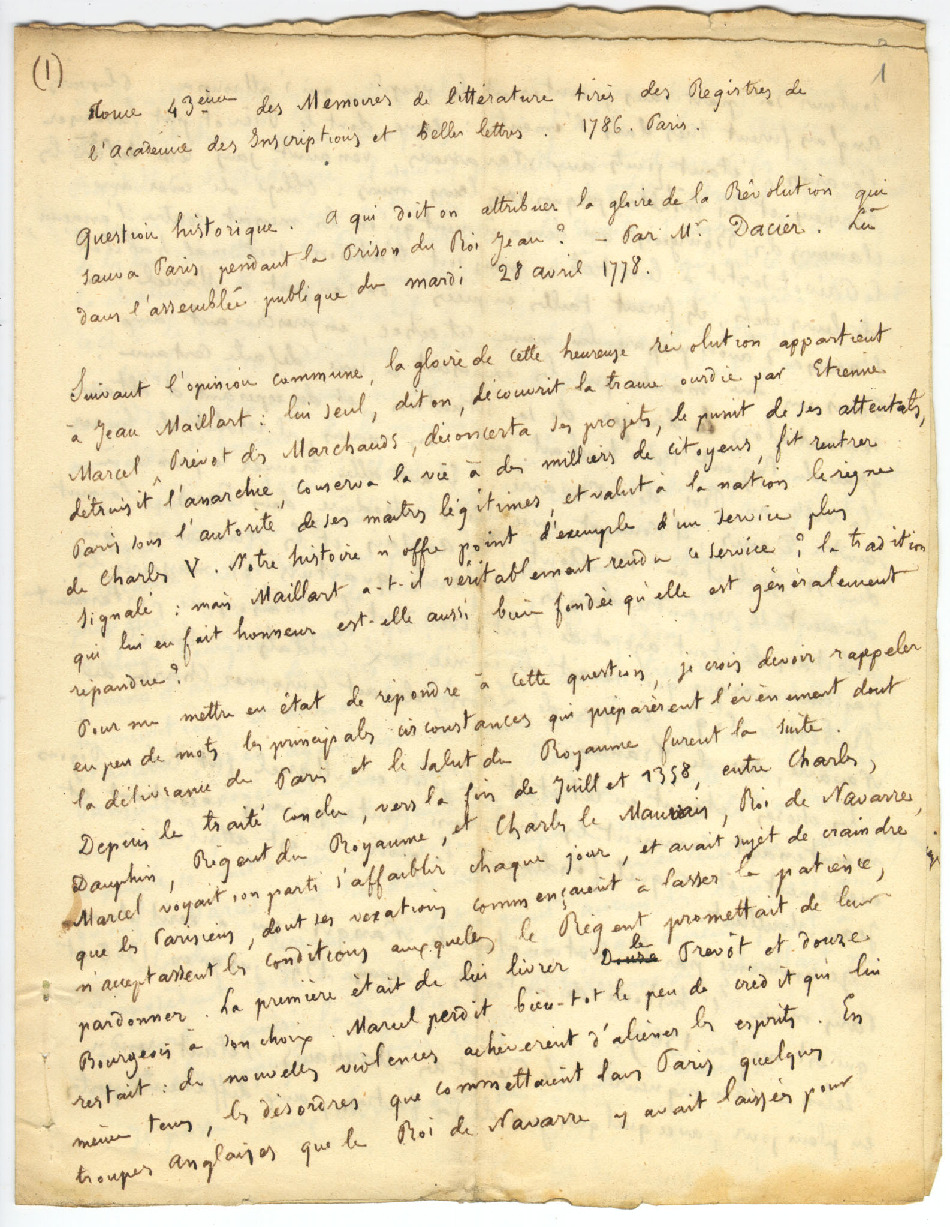 (1)
1
Tome 43ème des Memoires de littérature tirés des Registres de
l'Académie des Inscriptions et belles lettres. 1786. Paris.
Question historique. A qui doit on attribuer la gloire de la Révolution qui
sauva Paris pendant la Prison du Roi Jean? - Par Mr. Dacier. Lu
dans l'assemblée publique du mardi 28 avril 1778.
Suivant l'opinion commune, la gloire de cette heureuse révolution appartient
à Jean Maillart : lui seul, dit on, découvrit la trame ourdie par Etienne
Marcel Prévot des Marchands, déconcerta ses projets, le punit de ses attentats,
détruisit l'anarchie, conserva la vie à des milliers de citoyens, fit rentrer
Paris sous l'autorité de ses maîtres légitimes, et valut à la nation le règne
de Charles V. Notre histoire n'offre point d'exemple d'un service plus
signalé : mais Maillart a-t-il véritablement rendu ce service? la tradition
qui lui en fait honneur est-elle aussi bien fondée qu'elle est généralement
répandue?
Pour me mettre en état de répondre à cette question, je crois devoir rappeler
en peu de mots les principales circonstances qui préparèrent l'évènement dont
la délivrance de Paris et le salut du Royaume furent la suite.
Depuis le traité conclu, vers la fin de Juillet 1358, entre Charles,
Dauphin, Régent du Royaume, et Charles le Mauvais, Roi de Navarre,
Marcel voyait son parti s'affaiblir chaque jour, et avait sujet de craindre
que les Parisiens, dont ses vexations commençaient à lasser la patience,
n'acceptassent les conditions auxquelles le Régent promettait de leur
pardonner. La première était de lui livrer Douze le Prevôt et douze
Bourgeois à son choix. Marcel perdit bien-tot le peu de crédit qui lui
restait : de nouvelles violences achevèrent d'aliéner les esprits. En
même tems, les désordres que commettaient dans Paris quelques
troupes Anglaises que le Roi de Navarre y avait laissées pour